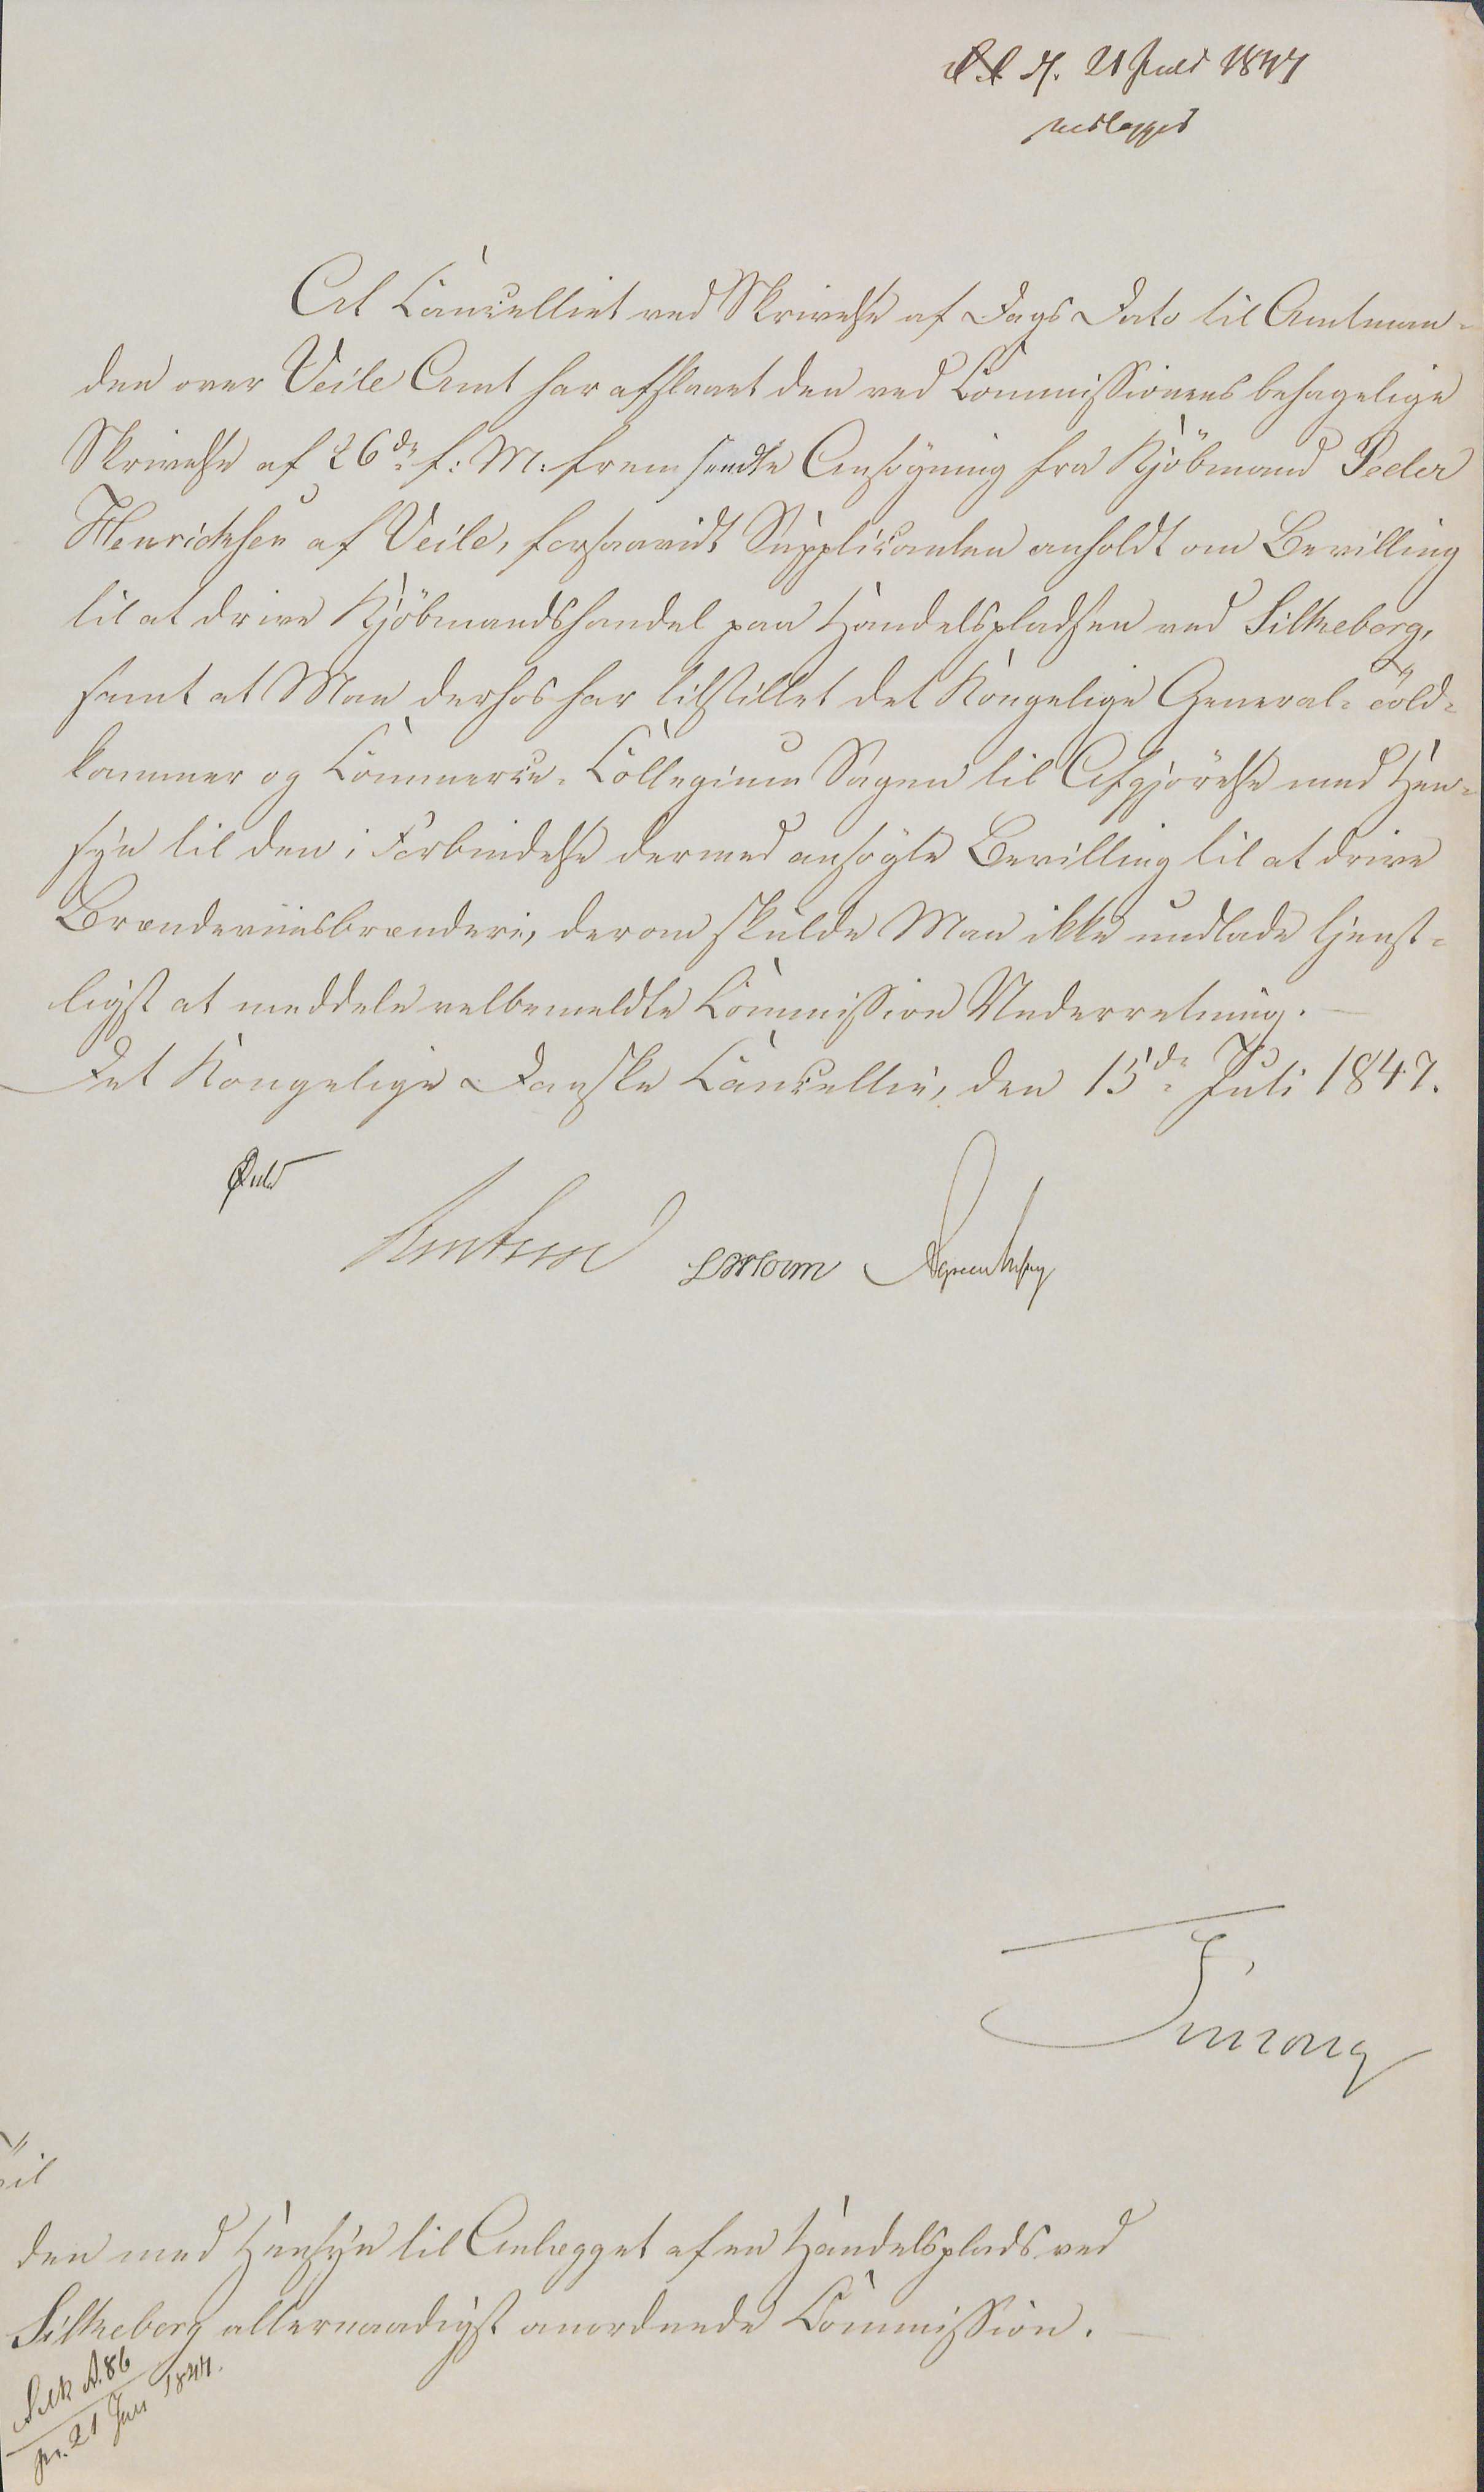 21 Juli 1847
henlægges
At Cancelliet ved Skrivelse af Dags Dato til Amtman-
den over Veile Amt har afslaaet den ved Commissionens behagelige
Skrivelse af 26de f: M: fremsendte Ansøgning fra Kjöbmand Peder
Henrichsen af Veile, forsaavidt Supplicanten anholdt om Bevilling
til at drive Kjöbmandshandel paa Handelspladsen ved Silkeborg,
samt at Man derhos har tilstillet det Kongelige General-Told-
kammer og Commerce-Collegium Sagen til Afgjörelse med Hen-
syn til den i Forbindelse dermed ansögte Bevilling til at drive
Brændeviinsbrænderi, derom skulde Man ikke undlade tjenst-
ligst at meddele velbemeldte Commission Underretning.
Det Kongelige Danske Cancellie, den 15de Juli 1847.
Til
den med Hensyn til Anlægget af en Handelsplads ved
Silkeborg allernaadigst anordnede Commission.
Silk A. 86
pr. 21 Juli 1847.